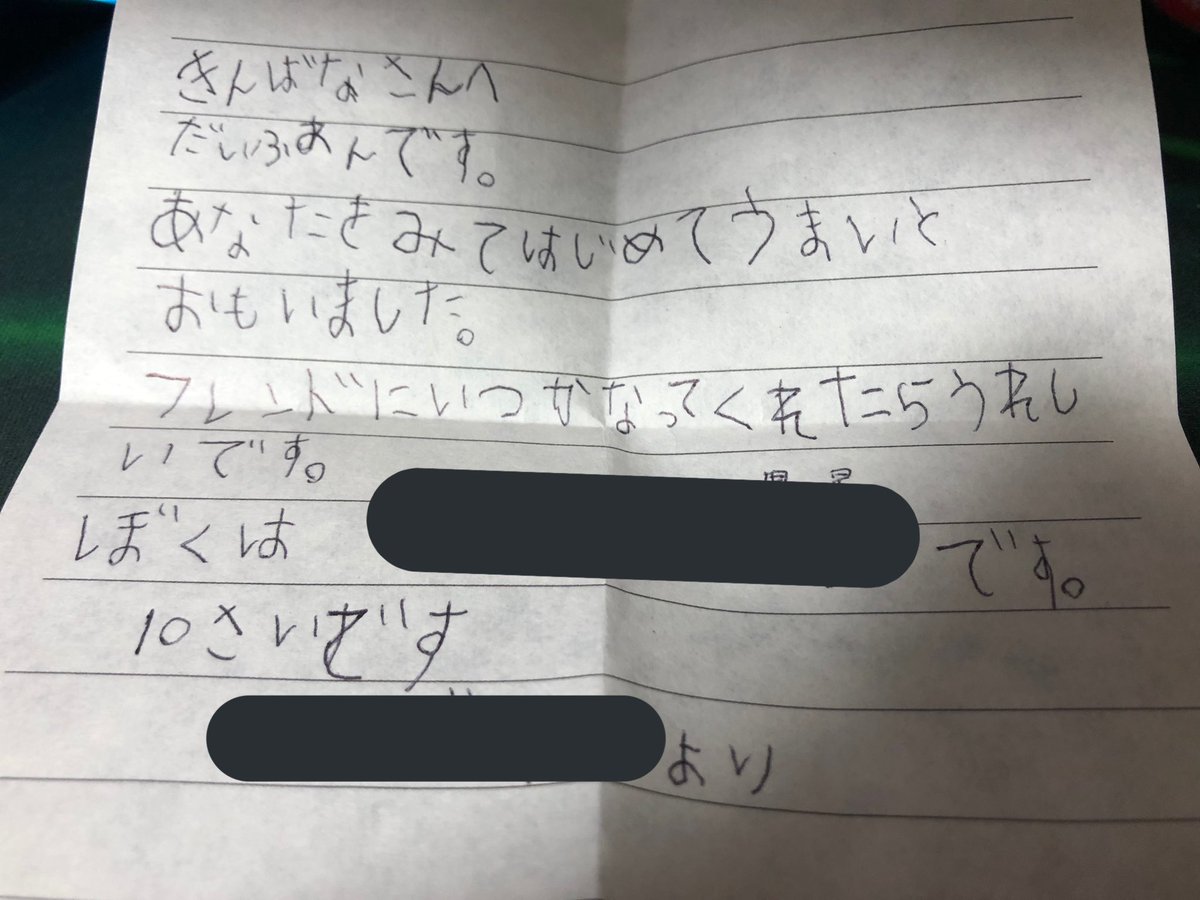 きんばなさんへ
だいふあんです。
あなたをみてはじめてうまいと
おもいました。
フレンドにいつかなってくれたらうれし
いです。
ぼくは です。
10さいです
より